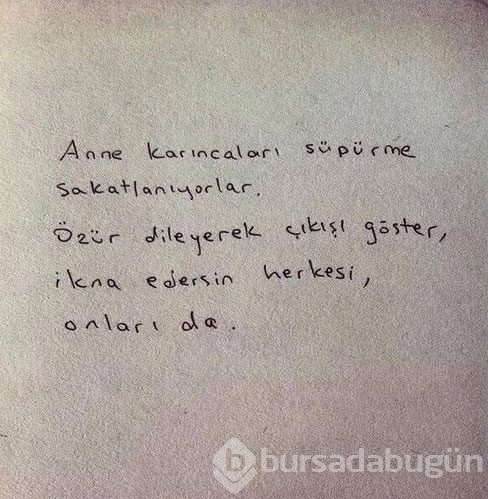 Anne karıncaları süpürme
sakatlanıyorlar.
Özür dileyerek çıkışı göster,
ikna edersin herkesi,
onları da.
b bursadabugün